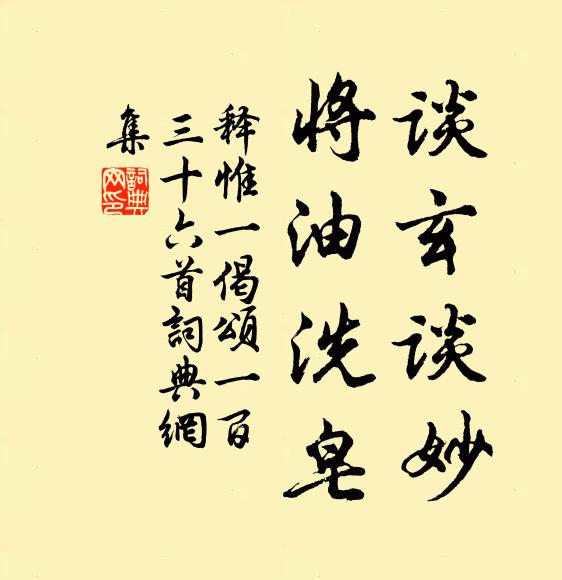 谈玄谈妙
将油洗皂
释惟一偈颂一百
三十六首詞典網
集
詞典
网印